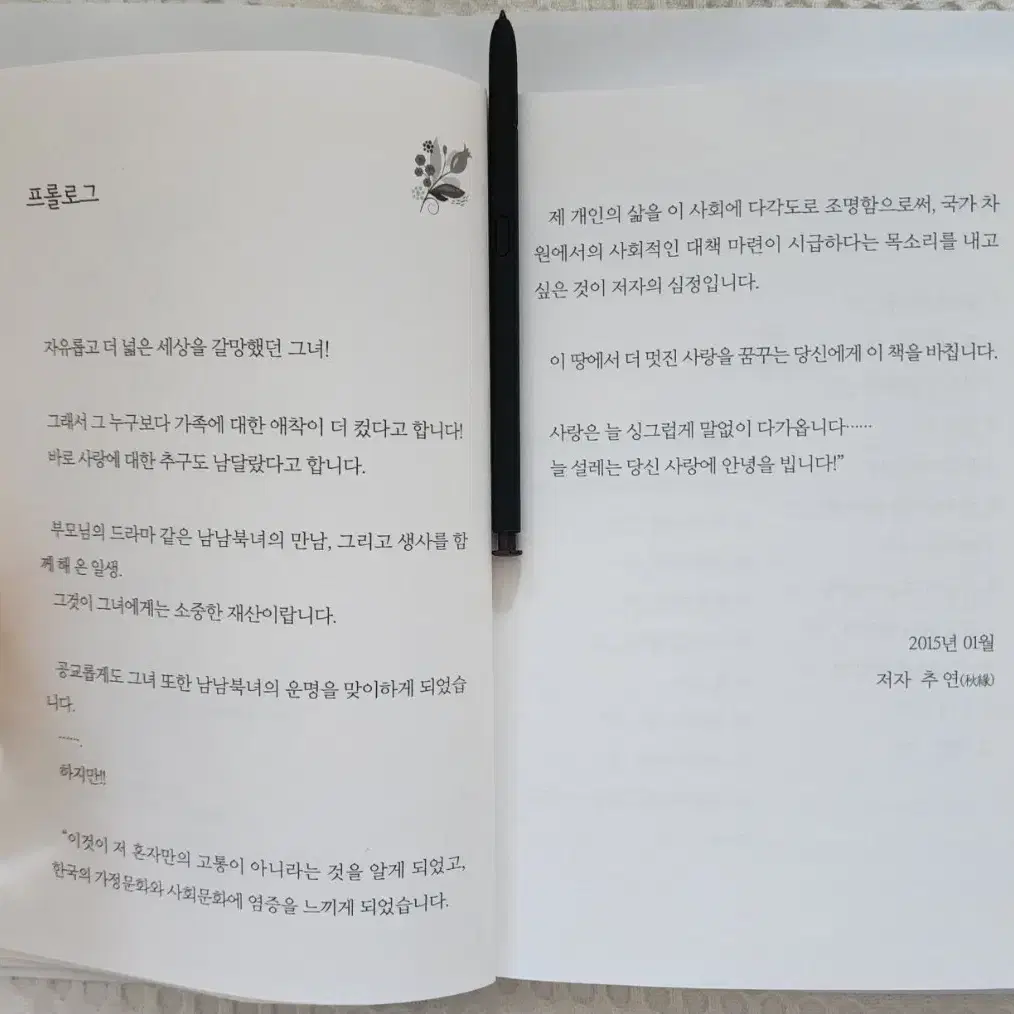 프롤로그
자유롭고 더 넓은 세상을 갈망했던 그녀!
그래서 그 누구보다 가족에 대한 애착이 더 컸다고 합니다!
바로 사랑에 대한 추구도 남달랐다고 합니다.
부모님의 드라마 같은 남남북녀의 만남, 그리고 생사를 함
께 해 온 일생.
그것이 그녀에게는 소중한 재산이랍니다.
공교롭게도 그녀 또한 남남북녀의 운명을 맞이하게 되었습
니다.
…….
하지만!!
“이것이 저 혼자만의 고통이 아니라는 것을 알게 되었고,
한국의 가정문화와 사회문화에 염증을 느끼게 되었습니다.
제 개인의 삶을 이 사회에 다각도로 조명함으로써, 국가 차
원에서의 사회적인 대책 마련이 시급하다는 목소리를 내고
싶은 것이 저자의 심정입니다.
이 땅에서 더 멋진 사랑을 꿈꾸는 당신에게 이 책을 바칩니다.
사랑은 늘 싱그럽게 말없이 다가옵니다……
늘 설레는 당신 사랑에 안녕을 빕니다!”
2015년 01월
저자 추 연(秋緣)